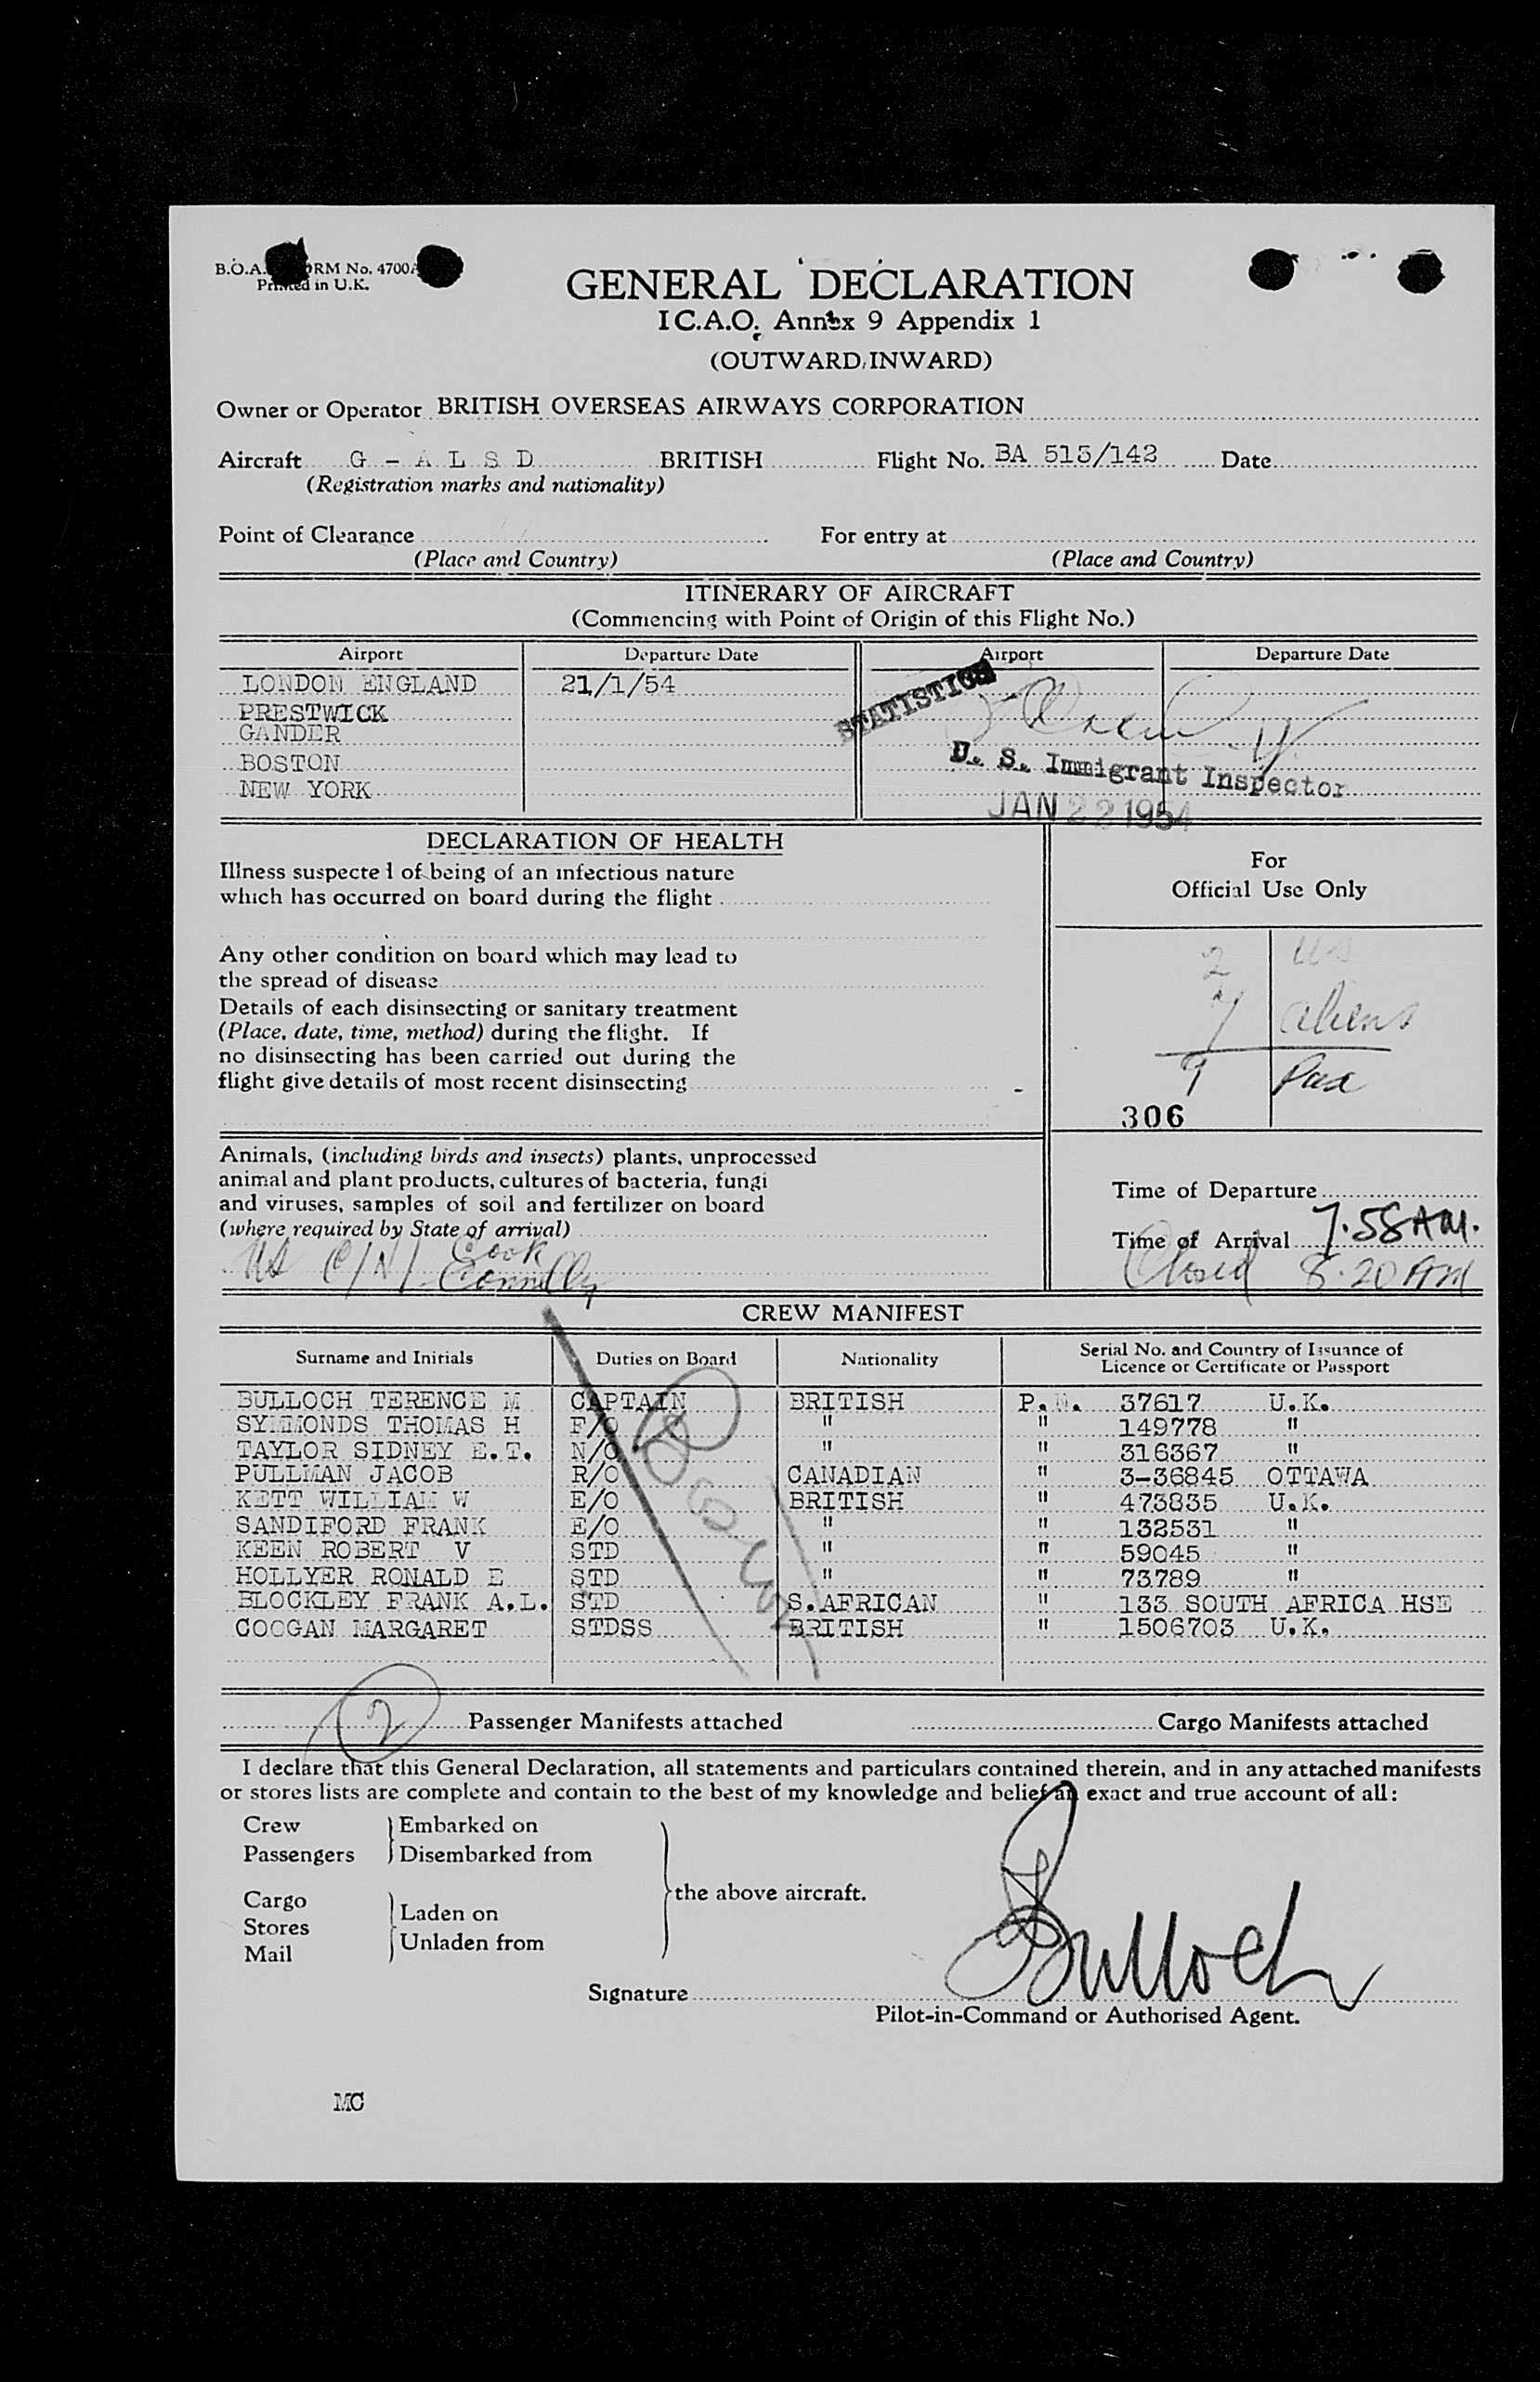 B.O.A. RM No. 4700A
Printed in U.K.
GENERAL DECLARATION
I C.A.O. Annex 9 Appendix 1
(OUTWARD/INWARD)
Owner or Operator BRITISH OVERSEAS AIRWAYS CORPORATION
Aircraft G - A L S D BRITISH Flight No. BA 515/142 Date
(Registration marks and nationality)
Point of Clearance For entry at
(Place and Country) (Place and Country)
ITINERARY OF AIRCRAFT
(Commencing with Point of Origin of this Flight No.)
Airport Departure Date Airport Departure Date
LONDON ENGLAND 21/1/54
STATISTICS
PRESTWICK
GANDER
BOSTON
U. S. Immigrant Inspector
NEW YORK
JAN 22 1954
DECLARATION OF HEALTH
Illness suspected of being of an infectious nature
which has occurred on board during the flight
Any other condition on board which may lead to
the spread of disease
Details of each disinsecting or sanitary treatment
(Place, date, time, method) during the flight. If
no disinsecting has been carried out during the
flight give details of most recent disinsecting
For
Official Use Only
2 US
7 aliens
9 Pax
306
Animals, (including birds and insects) plants, unprocessed
animal and plant products, cultures of bacteria, fungi
and viruses, samples of soil and fertilizer on board
(where required by State of arrival)
Cook
Connolly
Time of Departure
Time of Arrival 7.58 AM.
Closed 8.20 AM
CREW MANIFEST
Surname and Initials Duties on Board Nationality Serial No. and Country of Issuance of
Licence or Certificate or Passport
BULLOCH TERENCE M CAPTAIN BRITISH P.N. 37617 U.K.
SYMMONDS THOMAS H F/O " " 149778 "
TAYLOR SIDNEY E.T. N/O " " 316367 "
PULLMAN JACOB R/O CANADIAN " 3-36845 OTTAWA
KETT WILLIAM W E/O BRITISH " 473835 U.K.
SANDIFORD FRANK E/O " " 132531 "
KEEN ROBERT V STD " " 59045 "
HOLLYER RONALD E STD " " 73789 "
BLOCKLEY FRANK A.L. STD S.AFRICAN " 133 SOUTH AFRICA HSE
COOGAN MARGARET STDSS BRITISH " 1506703 U.K.
2 Passenger Manifests attached Cargo Manifests attached
I declare that this General Declaration, all statements and particulars contained therein, and in any attached manifests
or stores lists are complete and contain to the best of my knowledge and belief an exact and true account of all:
Crew Embarked on
Passengers Disembarked from
the above aircraft.
Cargo
Stores Laden on
Mail Unladen from
Signature Bulloch
Pilot-in-Command or Authorised Agent.
MC